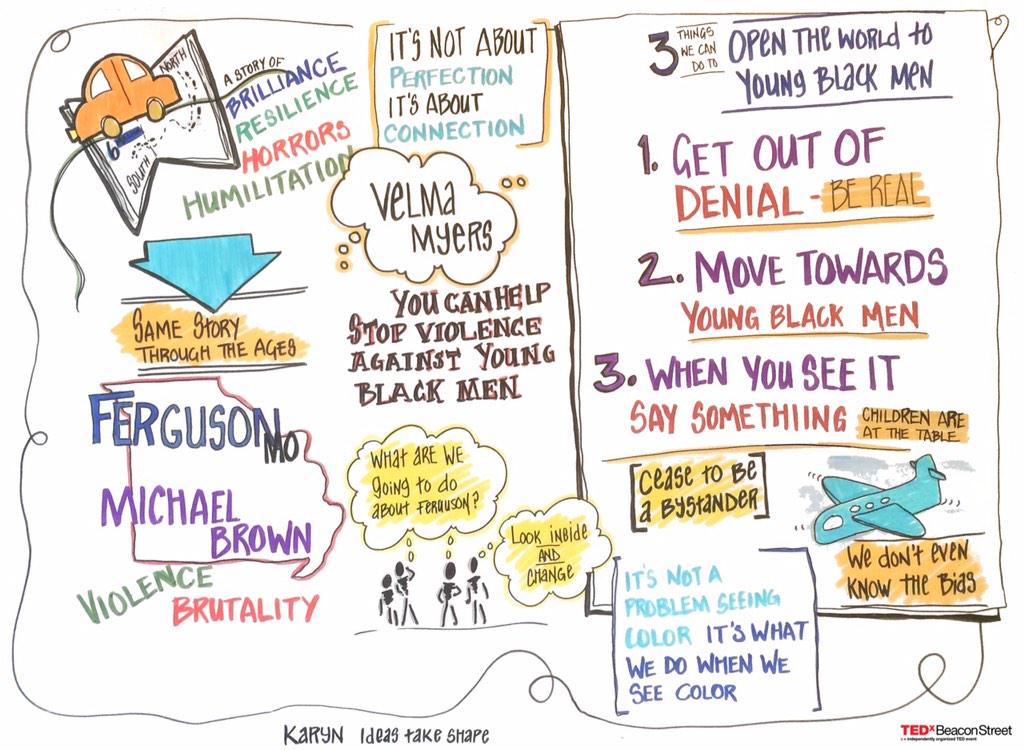 NORTH
SOUTH
6
A STORY OF
BRILLIANCE
RESILIENCE
HORRORS
HUMILITATION
SAME STORY
THROUGH THE AGES
FERGUSON
MO
MICHAEL
BROWN
VIOLENCE
BRUTALITY
IT'S NOT ABOUT
PERFECTION
IT'S ABOUT
CONNECTION
VELMA
MYERS
YOU CAN HELP
STOP VIOLENCE
AGAINST YOUNG
BLACK MEN
WHAT ARE WE
GOING TO DO
ABOUT FERGUSON?
LOOK INSIDE
AND
CHANGE
3 THINGS
WE CAN
DO TO
OPEN THE WORLD TO
YOUNG BLACK MEN
1. GET OUT OF
DENIAL - BE REAL
2. MOVE TOWARDS
YOUNG BLACK MEN
3. WHEN YOU SEE IT
SAY SOMETHIING CHILDREN ARE
AT THE TABLE
CEASE TO BE
A BYSTANDER
WE DON'T EVEN
KNOW THE BIAS
IT'S NOT A
PROBLEM SEEING
COLOR IT'S WHAT
WE DO WHEN WE
SEE COLOR
KARYN IDEAS TAKE SHAPE
TEDxBeaconStreet
x = independently organized TED event